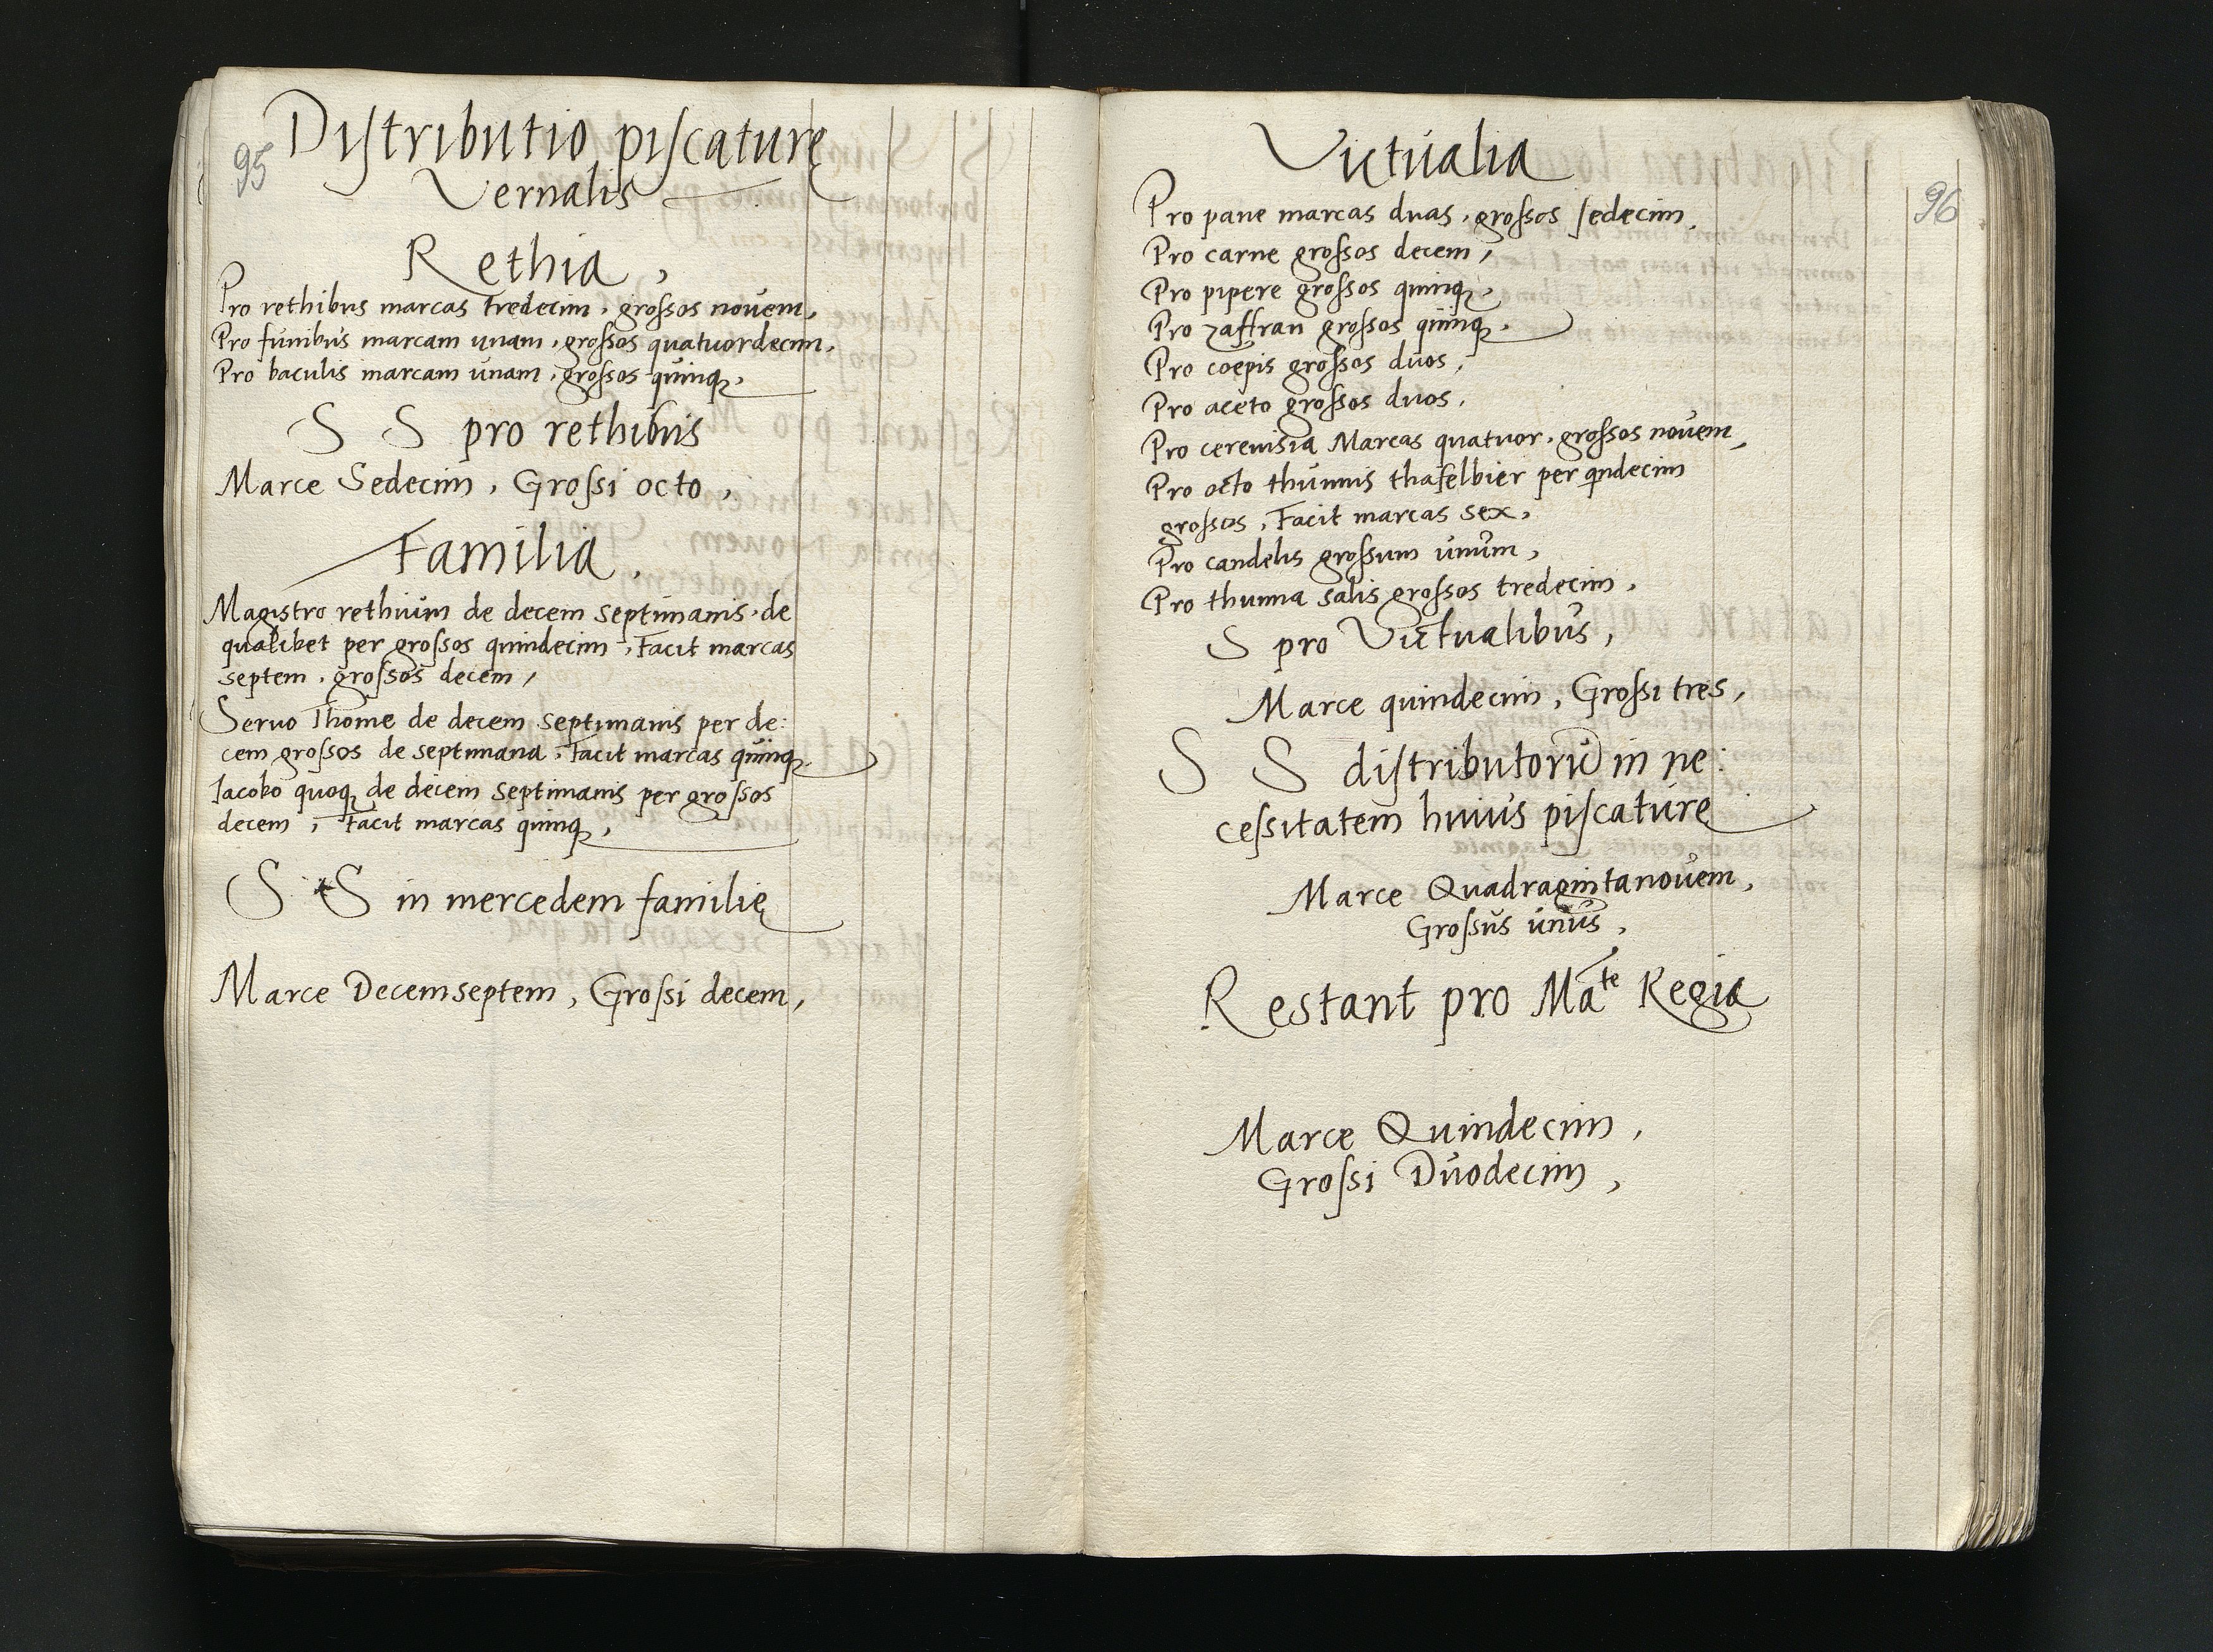 95
Distributio piscaturę
Vernalis
Rethia,
Pro rethibus marcas tredecim, grossos novem,
Pro funibus marcam unam, grossos quatuordecim,
Pro baculis marcam unam, grossos quinq,
S S pro rethibus
Marce Sedecim, Grossi octo,
Familia,
Magistro rethium de decem septimanis de
qualibet per grossos quindecim, Facit marcas
septem, grossos decem,
Servo Thome de decem septimanis per de:
cem grossos de septimana, Facit marcas quinq,
Iacobo quoq de decem septimanis per grossos
decem, Facit marcas quinq,
S S in mercedem familię
Marce Decemseptem, Grossi decem,
96
Victualia
Pro pane marcas duas, grossos sedecim,
Pro carne grossos decem,
Pro pipere grossos quinq,
Pro zaffran grossos quinq,
Pro coepis grossos duos,
Pro aceto grossos duos,
Pro cerevisia Marcas quatuor, grossos novem,
Pro octo thunnis thafelbier per qndecim
grossos, Facit marcas sex,
Pro candelis grossum unum,
Pro thunna salis grossos tredecim,
S pro Victualibus,
Marce quindecim, Grossi tres,
S S distributorū in ne:
cessitatem huius piscature
Marce Quadragintanovem,
Grossus unus,
Restant pro Mate Regia
Marce Quindecim,
Grossi Duodecim,